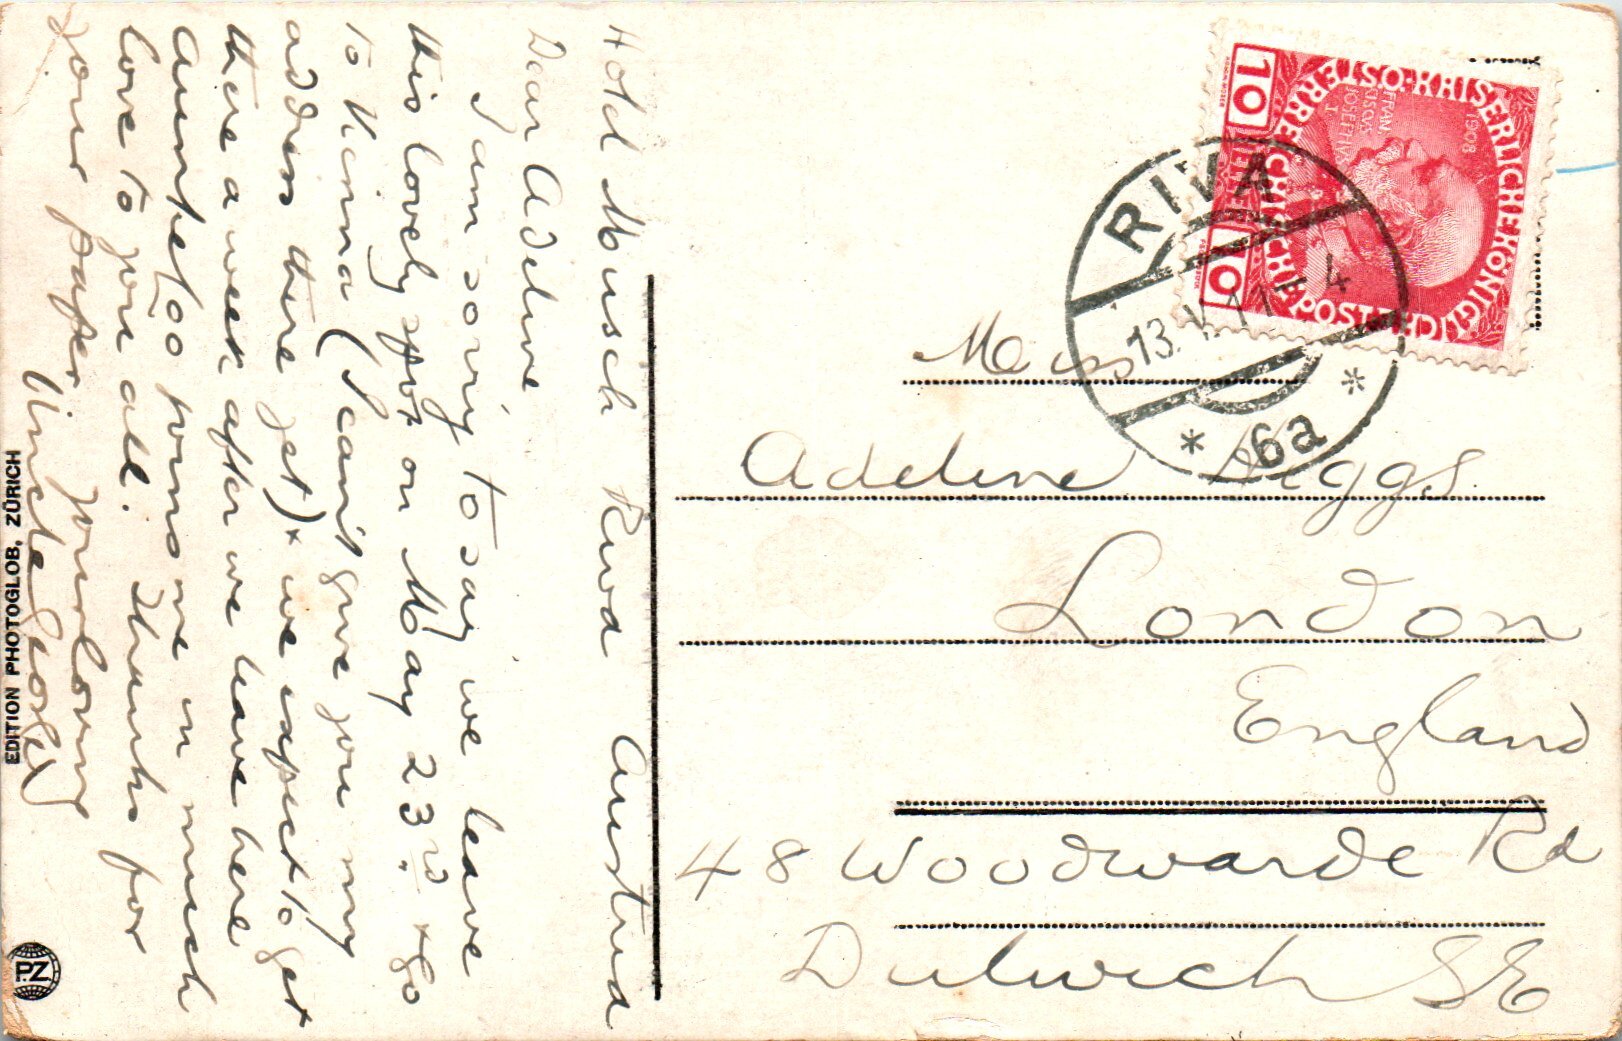 Hotel Musch Riva Austria
Dear Adeline
I am sorry to say we leave
this lovely spot on May 23rd. + go
to Vienna (I can't give you my
address there yet) + we expect to get
there a week after we leave here
Auntie too joins me in much
love to you all. Thanks for
your paper your loving
Uncle George
EDITION PHOTOGLOB, ZÜRICH
PZ
KAISERLICHEKÖNIGLICHE
ÖSTERREICHISCHE POST
FRANCISCVS JOSEPH I
1908
10 HELLER 10
RIVA
13. V. 11 - 4
* 6a *
Miss
Adeline Higgs.
London
England
48 Woodwarde Rd
Dulwich SE